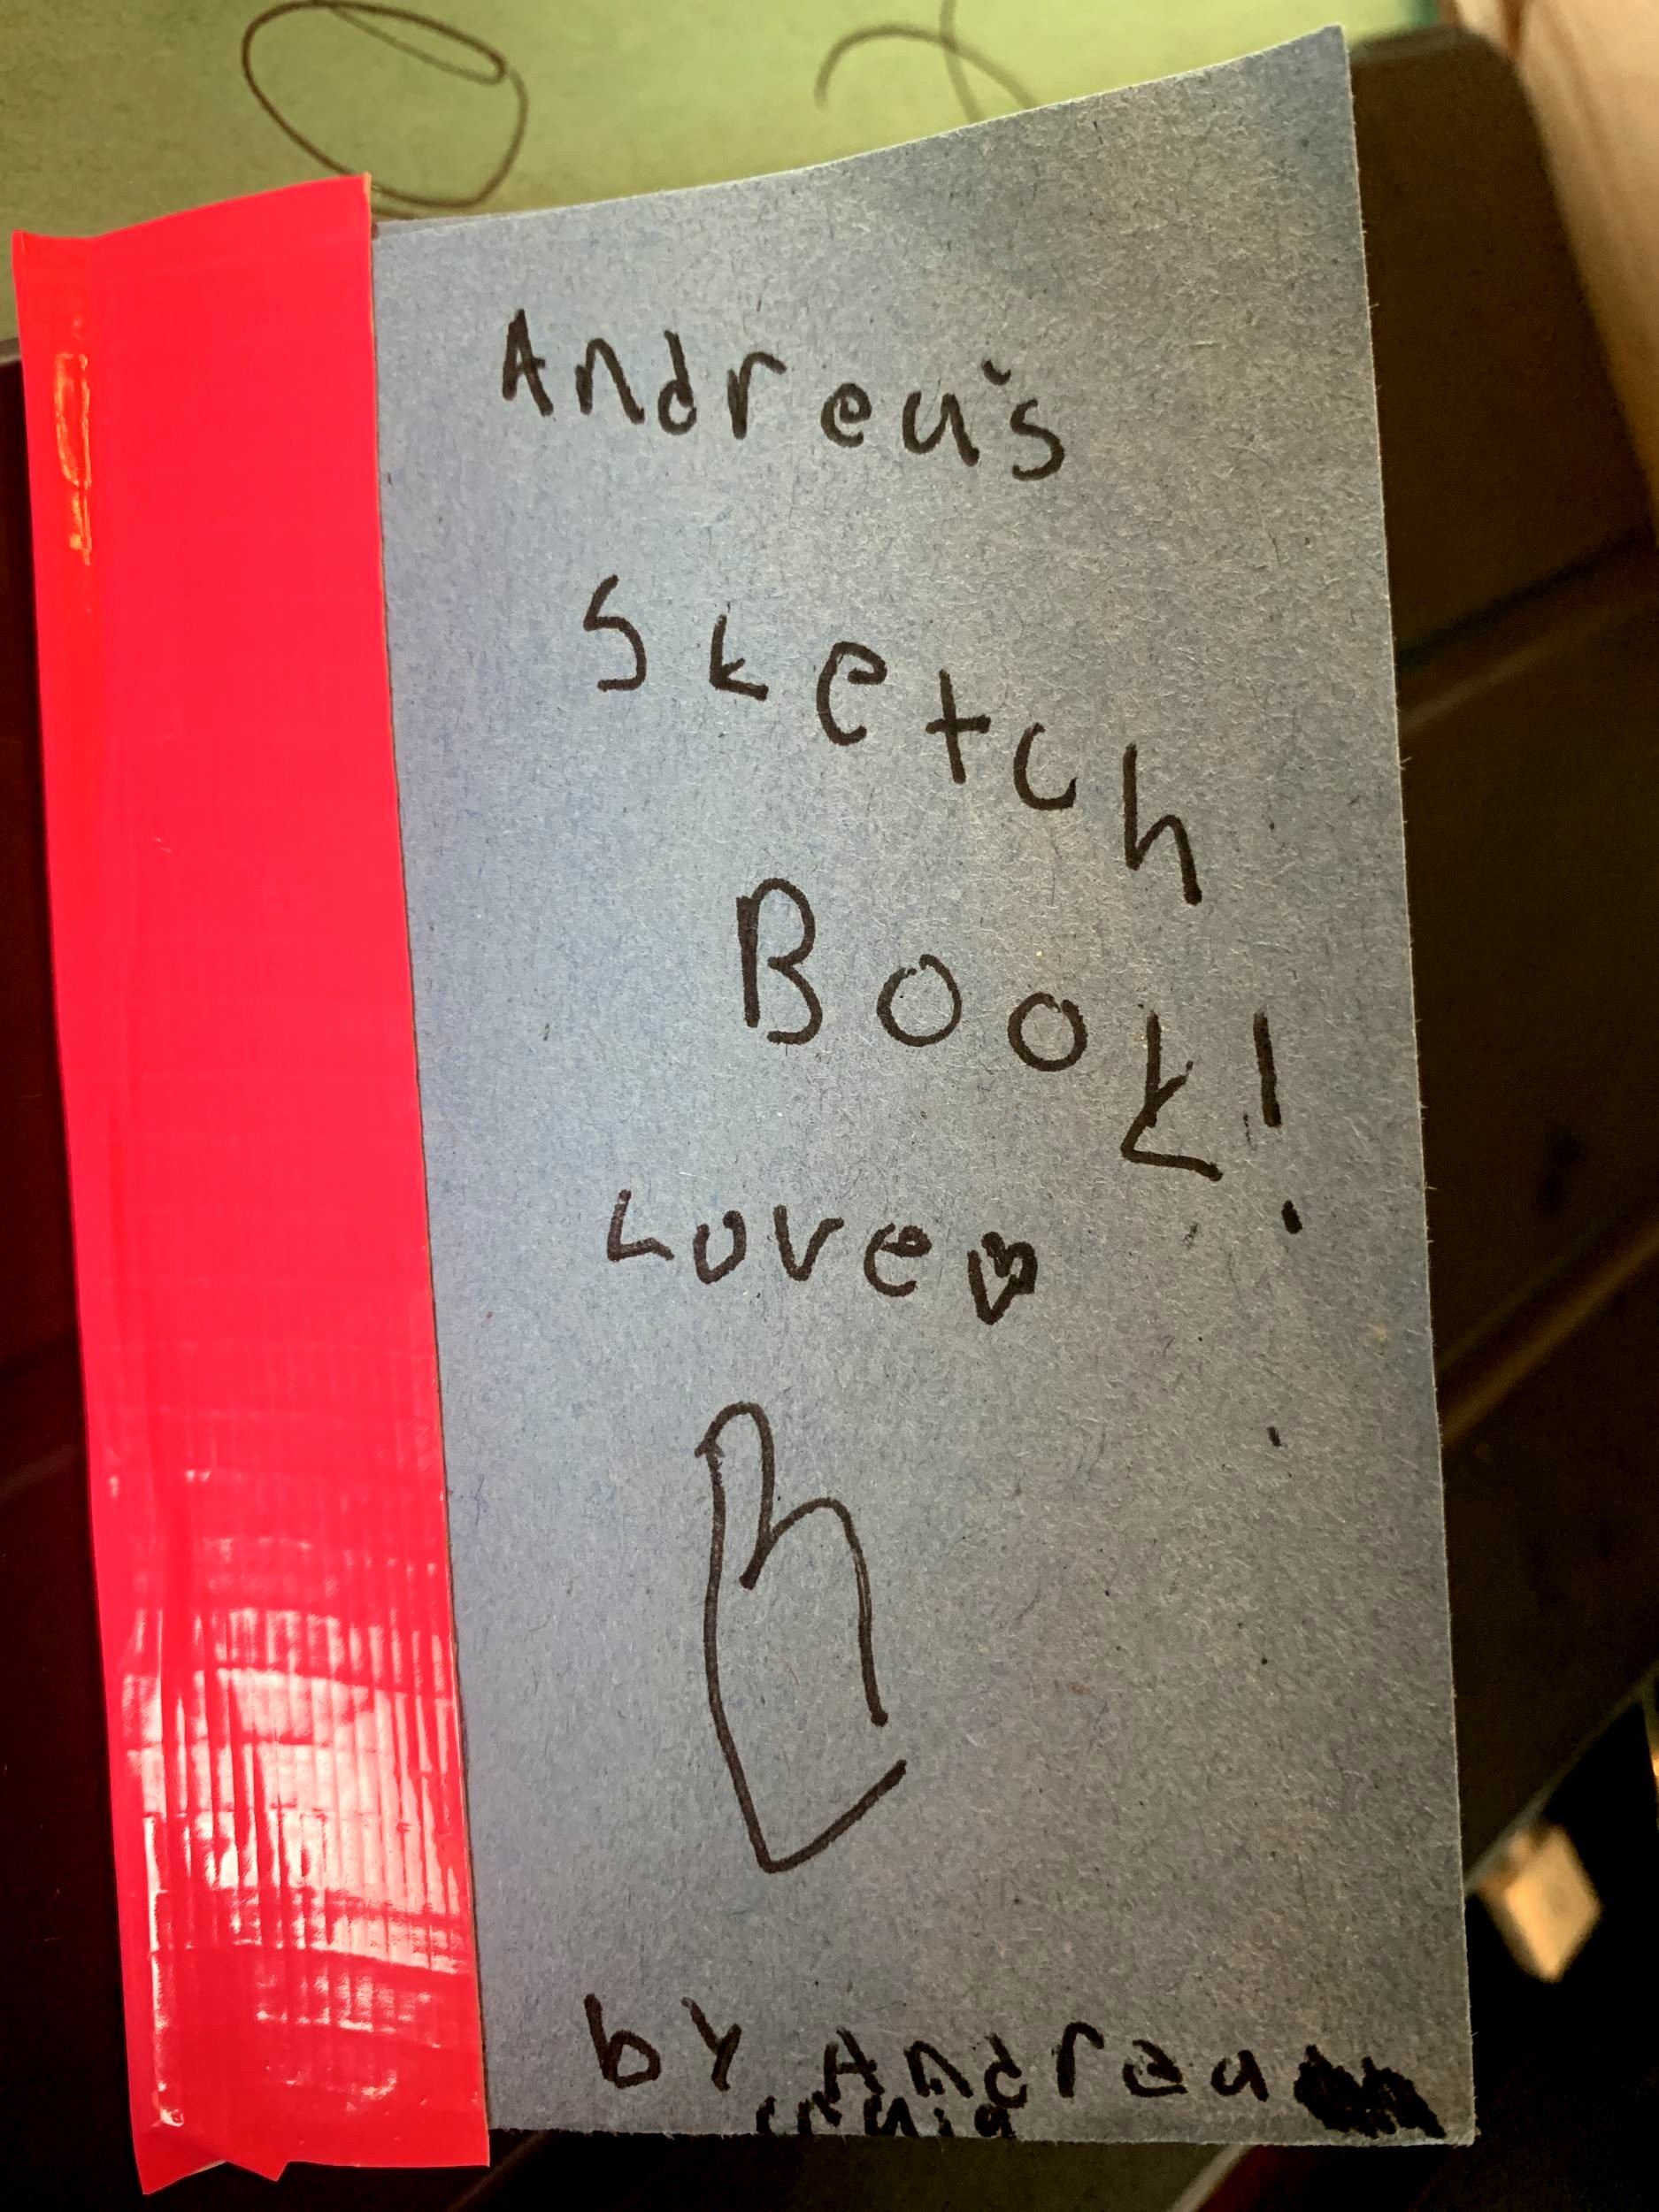 Andrea's
Sketch
Book!
Love
by Andrea
craig